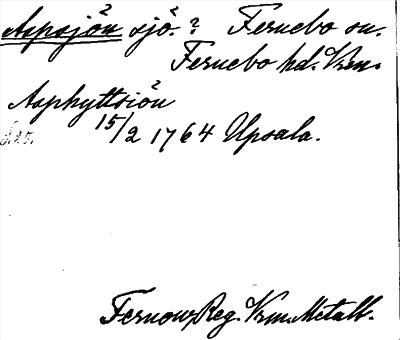 Aspsjön sjö? Fernebo sn.
Fernebo hd. Vrm.
Asphyttsiön
15/2 1764 Upsala.
Fernow, Reg. Vrm. Metall.